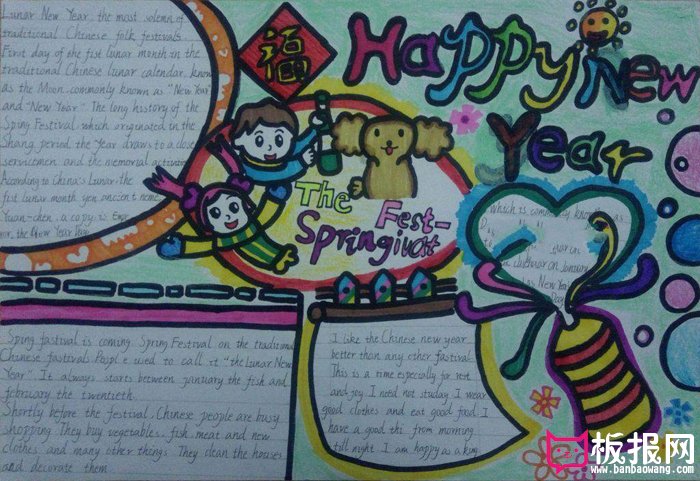 Lunar New Year, the most solemn of
traditional Chinese folk festivals.
First day of the fist lunar month in the
traditional Chinese lunar calendar, know
as the Moon, commonly known as "New Year"
and "New Year". The long history of the
Sping Festival, which originated in the
Shang period the Year draws to a close
servicemen and the memorial
According to China's Lunar the
fist lunar month
a copy is
the New Year
福
Happy New
Year
The
Spring Fest-
ival
which is commonly know as
on January
New Year
Sping fastival is coming Spring Festival on the traditiona
Chinese fastivals People used to call it "the Lunar New
Year". It always starts between january the fish and
february the twentieth.
Shortly before the festival, Chinese people are busy
shopping. They buy vegetables, fish meat and new
clothes and many other things They clean the houses
and decorate them
I like the Chinese new year
better than any other fastival.
This is a time especially for rest
and joy I need not studay I wear
good clothes and eat good food I
have a good thi from morning
till night I am happy as a king
板报网
www.banbaowang.com